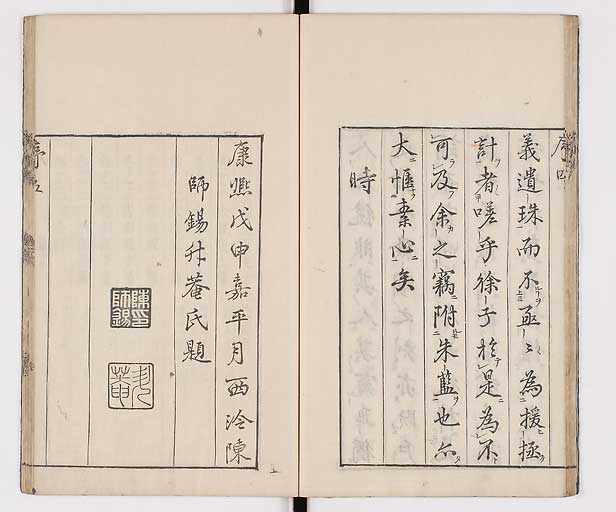 序四
義遺珠而不亟〻為援拯
計者嗟乎徐子於是為不
可及余之竊附朱藍也尓
大愜素心矣
時
康熙戊申嘉平月西泠陳
師錫升菴氏題
陳印師錫
升菴
序五